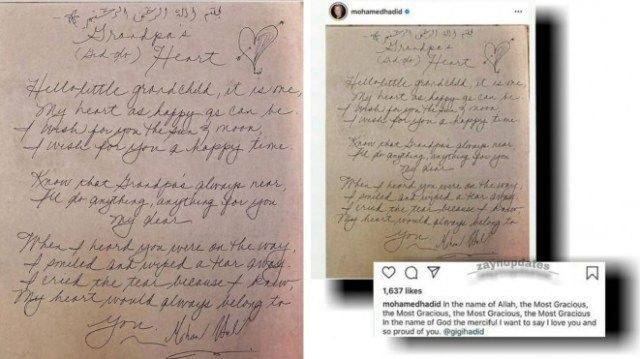 بسم الله الرحمن الرحيم
Grandpa's
Heart
Hello little grandchild, it is me,
My heart as happy as can be.
I wish for you the sun & moon,
I wish for you a happy time.
Know that Grandpa's always near,
I'll do anything, anything for you
My dear
When I heard you were on the way,
I smiled and wiped a tear away.
I cried the tear because I knew
My heart would always belong to
You.
mohamedhadid
بسم الله الرحمن الرحيم
Grandpa's
Heart
Hello little grandchild, it is me,
My heart as happy as can be.
I wish for you the sun & moon,
I wish for you a happy time.
Know that Grandpa's always near,
I'll do anything, anything for you
My dear
When I heard you were on the way,
I smiled and wiped a tear away.
I cried the tear because I knew
My heart would always belong to
You.
zaynupdates
1,637 likes
mohamedhadid In the name of Allah, the Most Gracious,
the Most Gracious, the Most Gracious, the Most Gracious
In the name of God the merciful I want to say I love you and
so proud of you. @gigihadid